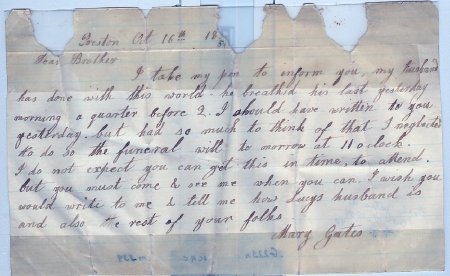 Boston Oct 16th 18
Dear Brother
I take my pen to inform you, my husband
has done with this world. he breathed his last yesterday
morning a quarter before 2. I should have written to you
yesterday. but had so much to think of that I neglected
to do so the funeral will to morrow at 11 o clock.
I do not expect you can get this in time, to attend.
but you must come & see me when you can. I wish you
would write to me & tell me how Lucys husband is
and also the rest of your folks.
Mary Gates